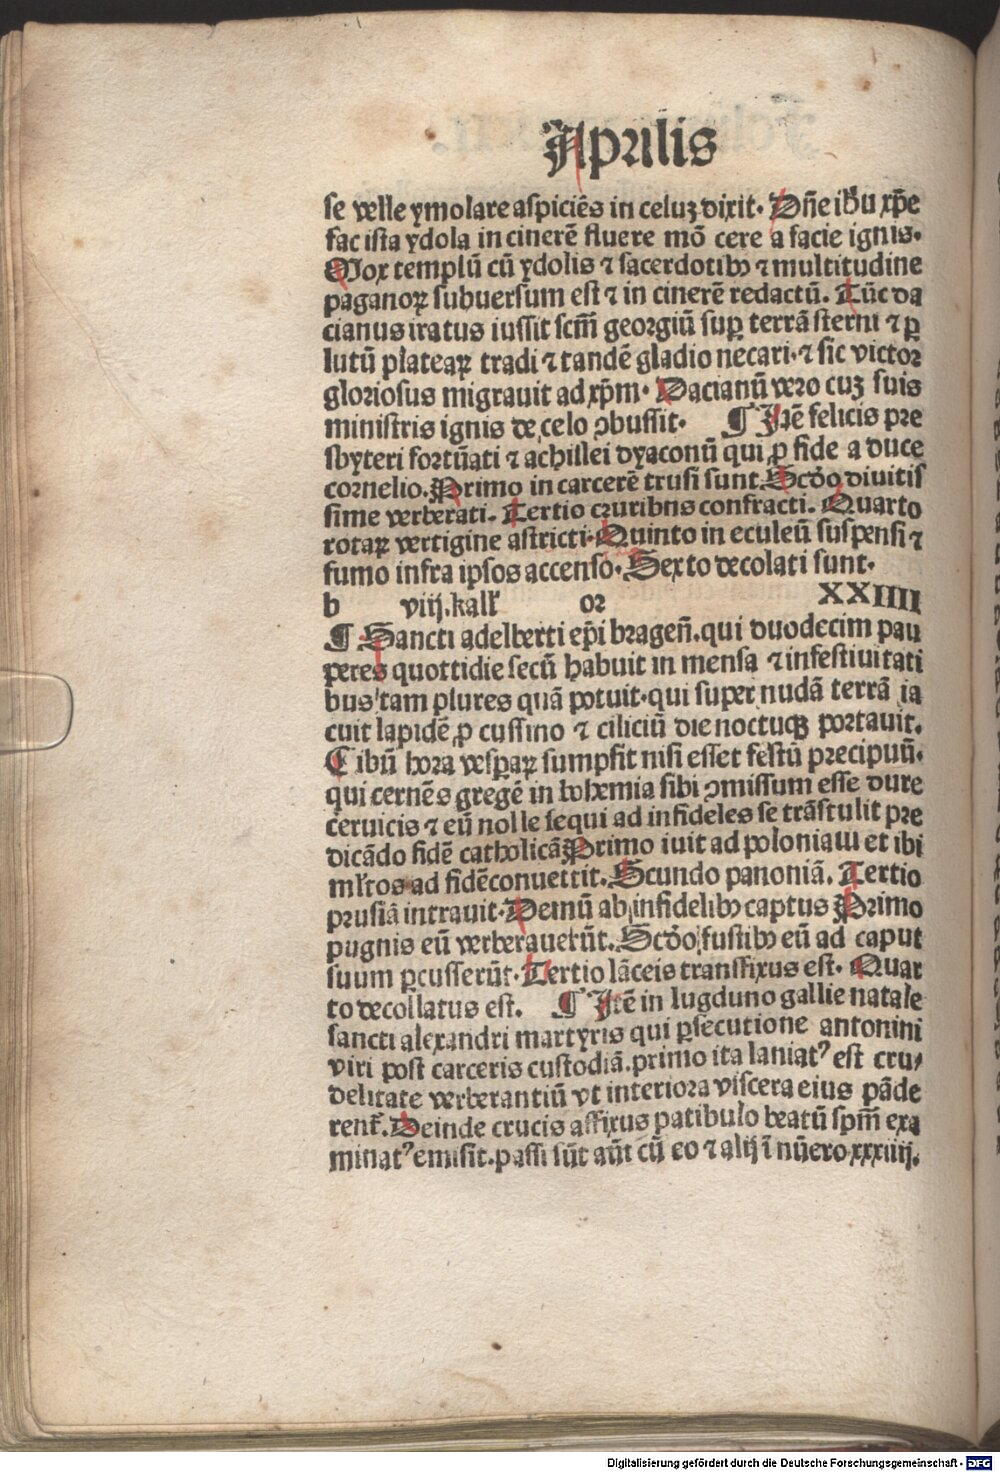 Aprilis
se velle ymolare aspiciēs in celuꝫ dixit. Dn̄e ih̄u xp̄e
fac ista ydola in cinerē fluere mō cere a facie ignis.
Mox templū cū ydolis ⁊ sacerdotibꝰ ⁊ multitudine
paganoꝝ subuersum est ⁊ in cinerē redactū. Tūc da
cianus iratus iussit scm̄ georgiū suꝑ terrā sterni ⁊ ꝑ
lutū plateaꝝ tradi ⁊ tandē gladio necari. ⁊ sic victor
gloriosus migrauit ad xp̄m. Dacianū vero cuꝫ suis
ministris ignis de celo ꝯbussit. ¶ Itē felicis pre
sbyteri fortūati ⁊ achillei dyaconū qui ꝓ fide a duce
cornelio. Primo in carcerē trusi sunt. Scd̄o diuitis
sime verberati. Tertio cruribns confracti. Quarto
rotaꝝ vertigine astricti. Quinto in eculeū suspensi ⁊
fumo infra ipsos accenso. Sexto decolati sunt.
b viij. kal̄ or XXIIII
¶ Sancti adelberti ep̄i bragen̄. qui duodecim pau
peres quottidie secū habuit in mensa ⁊ infestiuitati
bus tam plures quā potuit. qui super nudā terrā ia
cuit lapidē ꝓ cussino ⁊ ciliciū die noctuqꝫ portauit.
Cibū hora vesꝑaꝝ sumpsit nisi esset festū precipuū.
qui cernēs gregē in bohemia sibi ꝯmissum esse dure
ceruicis ⁊ eū nolle sequi ad infideles se trāstulit pre
dicādo fidē catholicā Primo iuit ad poloniam et ibi
ml̄tos ad fidēconuettit. Scundo panoniā. Tertio
prusiā intrauit. Demū ab infidelibꝰ captus Primo
pugnis eū verberauerūt. Scd̄o fustibꝰ eū ad caput
suum ꝑcusserūt. Tertio lāceis transfixus est. Quar
to decollatus est. ¶ Itē in lugduno gallie natale
sancti alexandri martyris qui ꝑsecutione antonini
viri post carceris custodiā. primo ita laniatꝰ est cru/
delitate verberantiū vt interiora viscera eius pāde
rent̄. Deinde crucis affixus patibulo beatū spm̄ exa
minatꝰ emisit. passi sūt aūt cū eo ⁊ alij ī nūero xxxiiij.
Digitalisierung gefördert durch die Deutsche Forschungsgemeinschaft - DFG